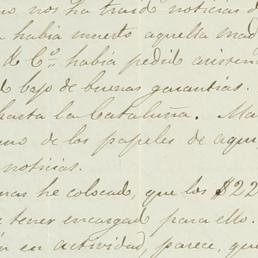 no nos ha traid noticias d
había muerto aquella mad
& Co. había pedid
bajo de buenas garantias.
hasta la Cataluña. Ma
uno de los papeles de aqui
noticias.
mas he colocad, que los $22
tener encargad para ello.
en actividad, parece, que